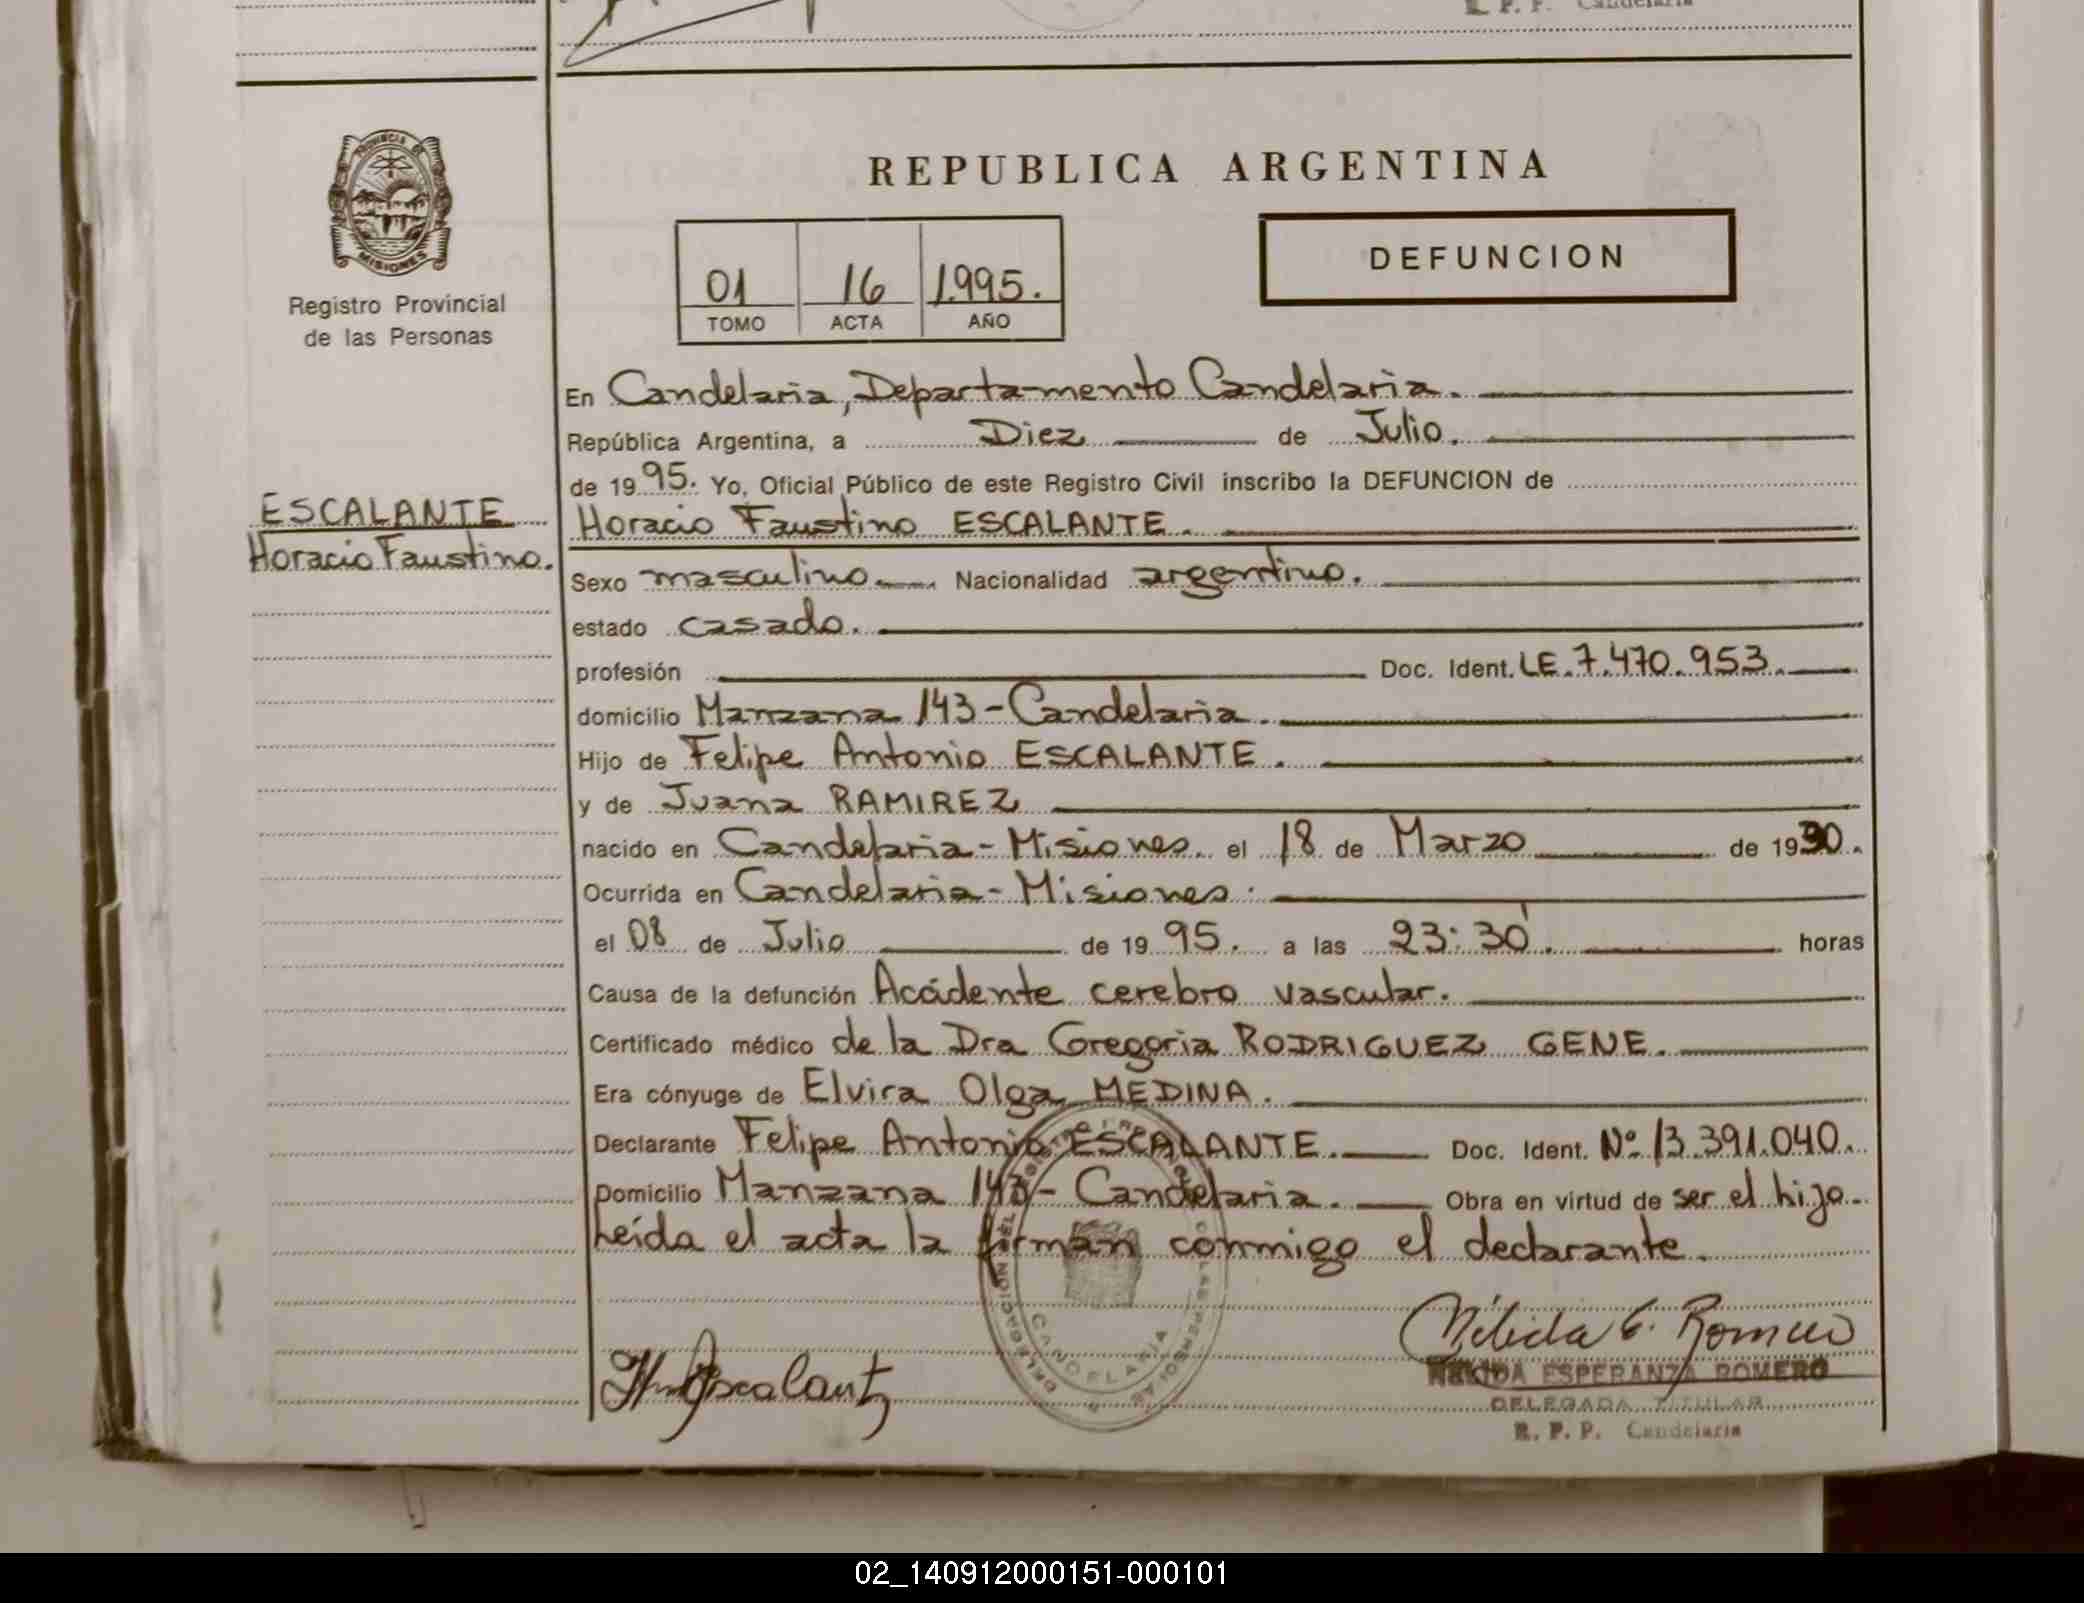 R. P. P. Candelaria
PROVINCIA DE
MISIONES
Registro Provincial
de las Personas
ESCALANTE
Horacio Faustino.
REPUBLICA ARGENTINA
01 16 1.995.
TOMO ACTA AÑO
DEFUNCION
En Candelaria, Departamento Candelaria.
República Argentina, a Diez de Julio.
de 1995. Yo, Oficial Público de este Registro Civil inscribo la DEFUNCION de
Horacio Faustino ESCALANTE.
Sexo masculino. Nacionalidad argentino.
estado casado.
profesión Doc. Ident. LE.7.470.953.
domicilio Manzana 143-Candelaria.
Hijo de Felipe Antonio ESCALANTE.
y de Juana RAMIREZ
nacido en Candelaria-Misiones. el 18 de Marzo de 1930.
Ocurrida en Candelaria-Misiones.
el 08 de Julio de 1995. a las 23:30'. horas
Causa de la defunción Accidente cerebro vascular.
Certificado médico de la Dra Gregoria RODRIGUEZ GENE.
Era cónyuge de Elvira Olga MEDINA.
Declarante Felipe Antonio ESCALANTE. Doc. Ident. Nº 13.391.040.
Domicilio Manzana 143- Candelaria. Obra en virtud de ser el hijo.
Leída el acta la firman conmigo el declarante.
DELEGACION DEL LAS PERSONAS
CANDELARIA
Escalante
Nélida E. Romero
NELIDA ESPERANZA ROMERO
DELEGADA TITULAR
R. P. P. Candelaria
02_140912000151-000101